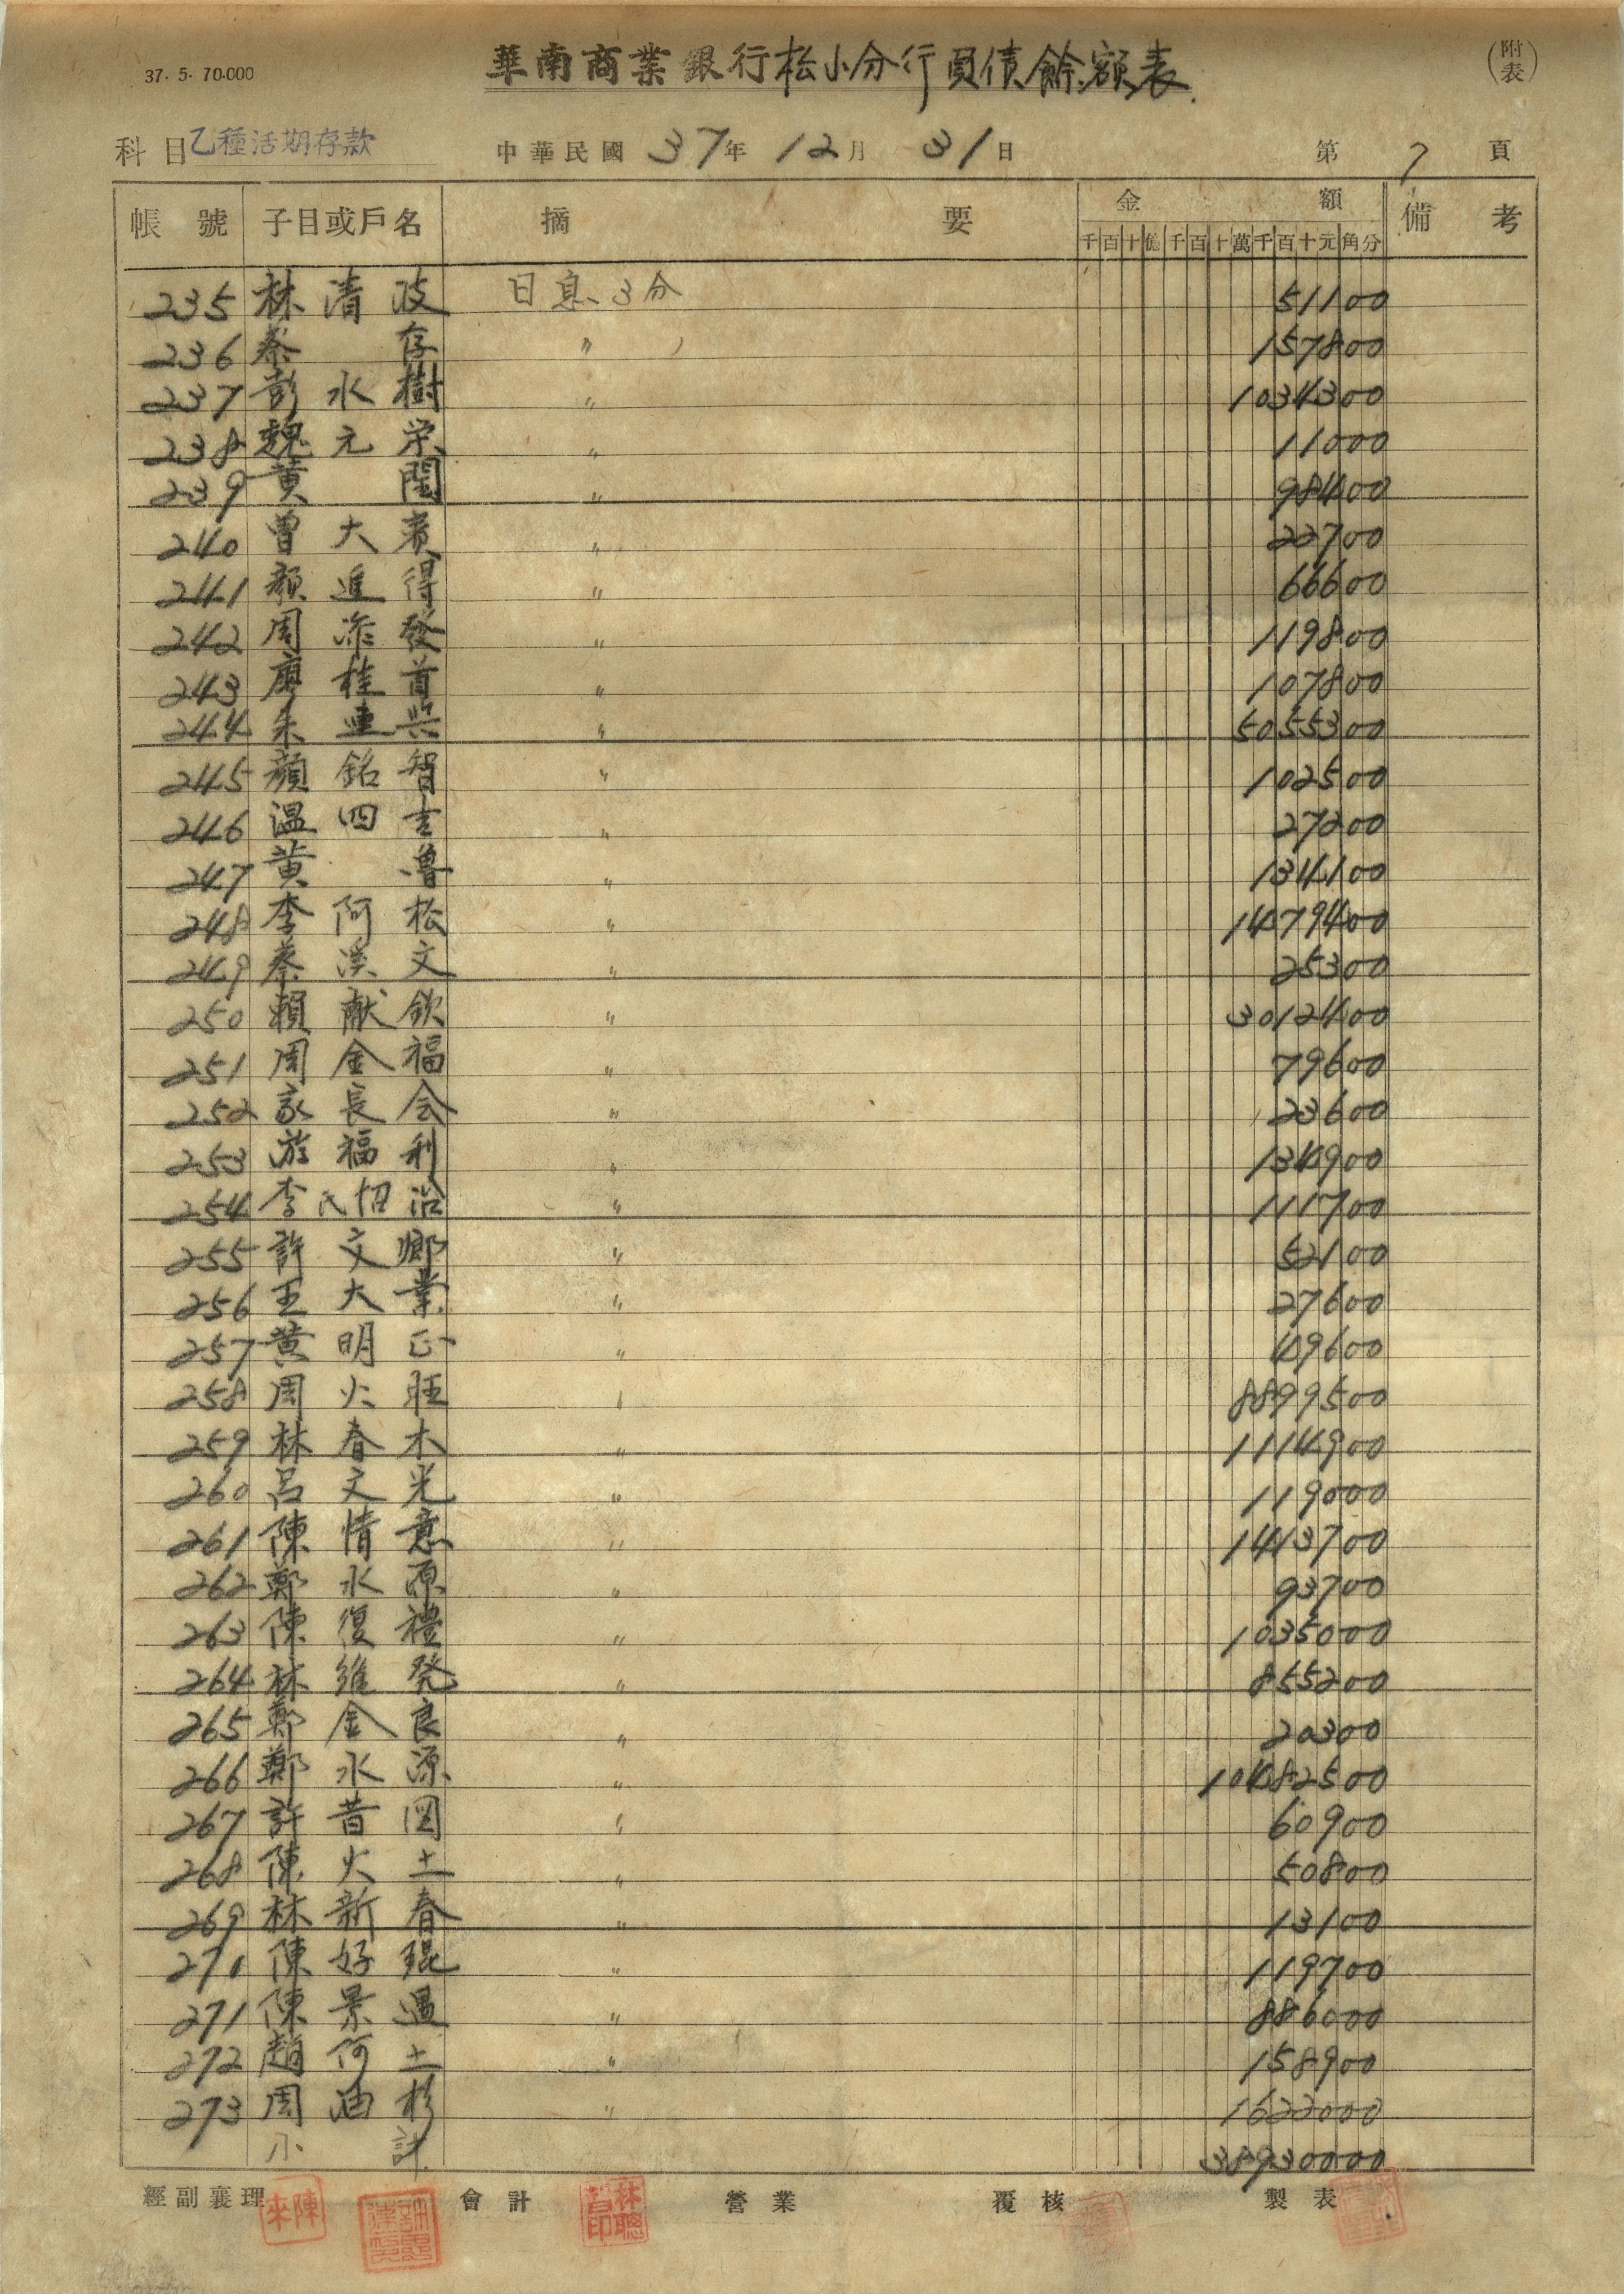 37. 5. 70.000
華南商業銀行松山分行負債餘額表
(附表)
科目 乙種活期存款 中華民國 37年 12月 31日 第 7 頁
帳號 子目或戶名 摘要 金額 備考
千百十億千百十萬千百十元角分
235 林清波 日息3分 51100
236 蔡存 〃 157800
237 彭水樹 〃 1034300
238 魏元栄 〃 11000
239 黃閨 〃 98400
240 曾大 〃 22700
241 顏進得 〃 66600
242 周添發 〃 119800
243 廖桂首 〃 107800
244 朱連興 〃 5055300
245 顏銘智 〃 102500
246 溫四吉 〃 27200
247 黃 〃 134100
248 李阿松 〃 1479400
249 蔡溪文 〃 25300
250 賴獻欽 〃 3012400
251 周金福 〃 79600
252 家長会 〃 23600
253 游福利 〃 134900
254 李氏招治 〃 111700
255 許文鄉 〃 52100
256 王大業 〃 27600
257 黃明正 〃 49600
258 周火旺 〃 8899500
259 林春木 〃 1114900
260 呂文光 〃 119000
261 陳情意 〃 1413700
262 鄭水源 〃 93700
263 陳復禮 〃 1035000
264 林維発 〃 855200
265 鄭金良 〃 20300
266 鄭水源 〃 10482500
267 許昔図 〃 60900
268 陳火土 〃 50800
269 林新春 〃 13100
270 陳好錕 〃 119700
271 陳景遇 〃 886000
272 趙阿土 〃 158900
273 周油杉 〃 1622000
小計 38930000
經副襄理 會計 營業 覆核 製表
陳來
林聰